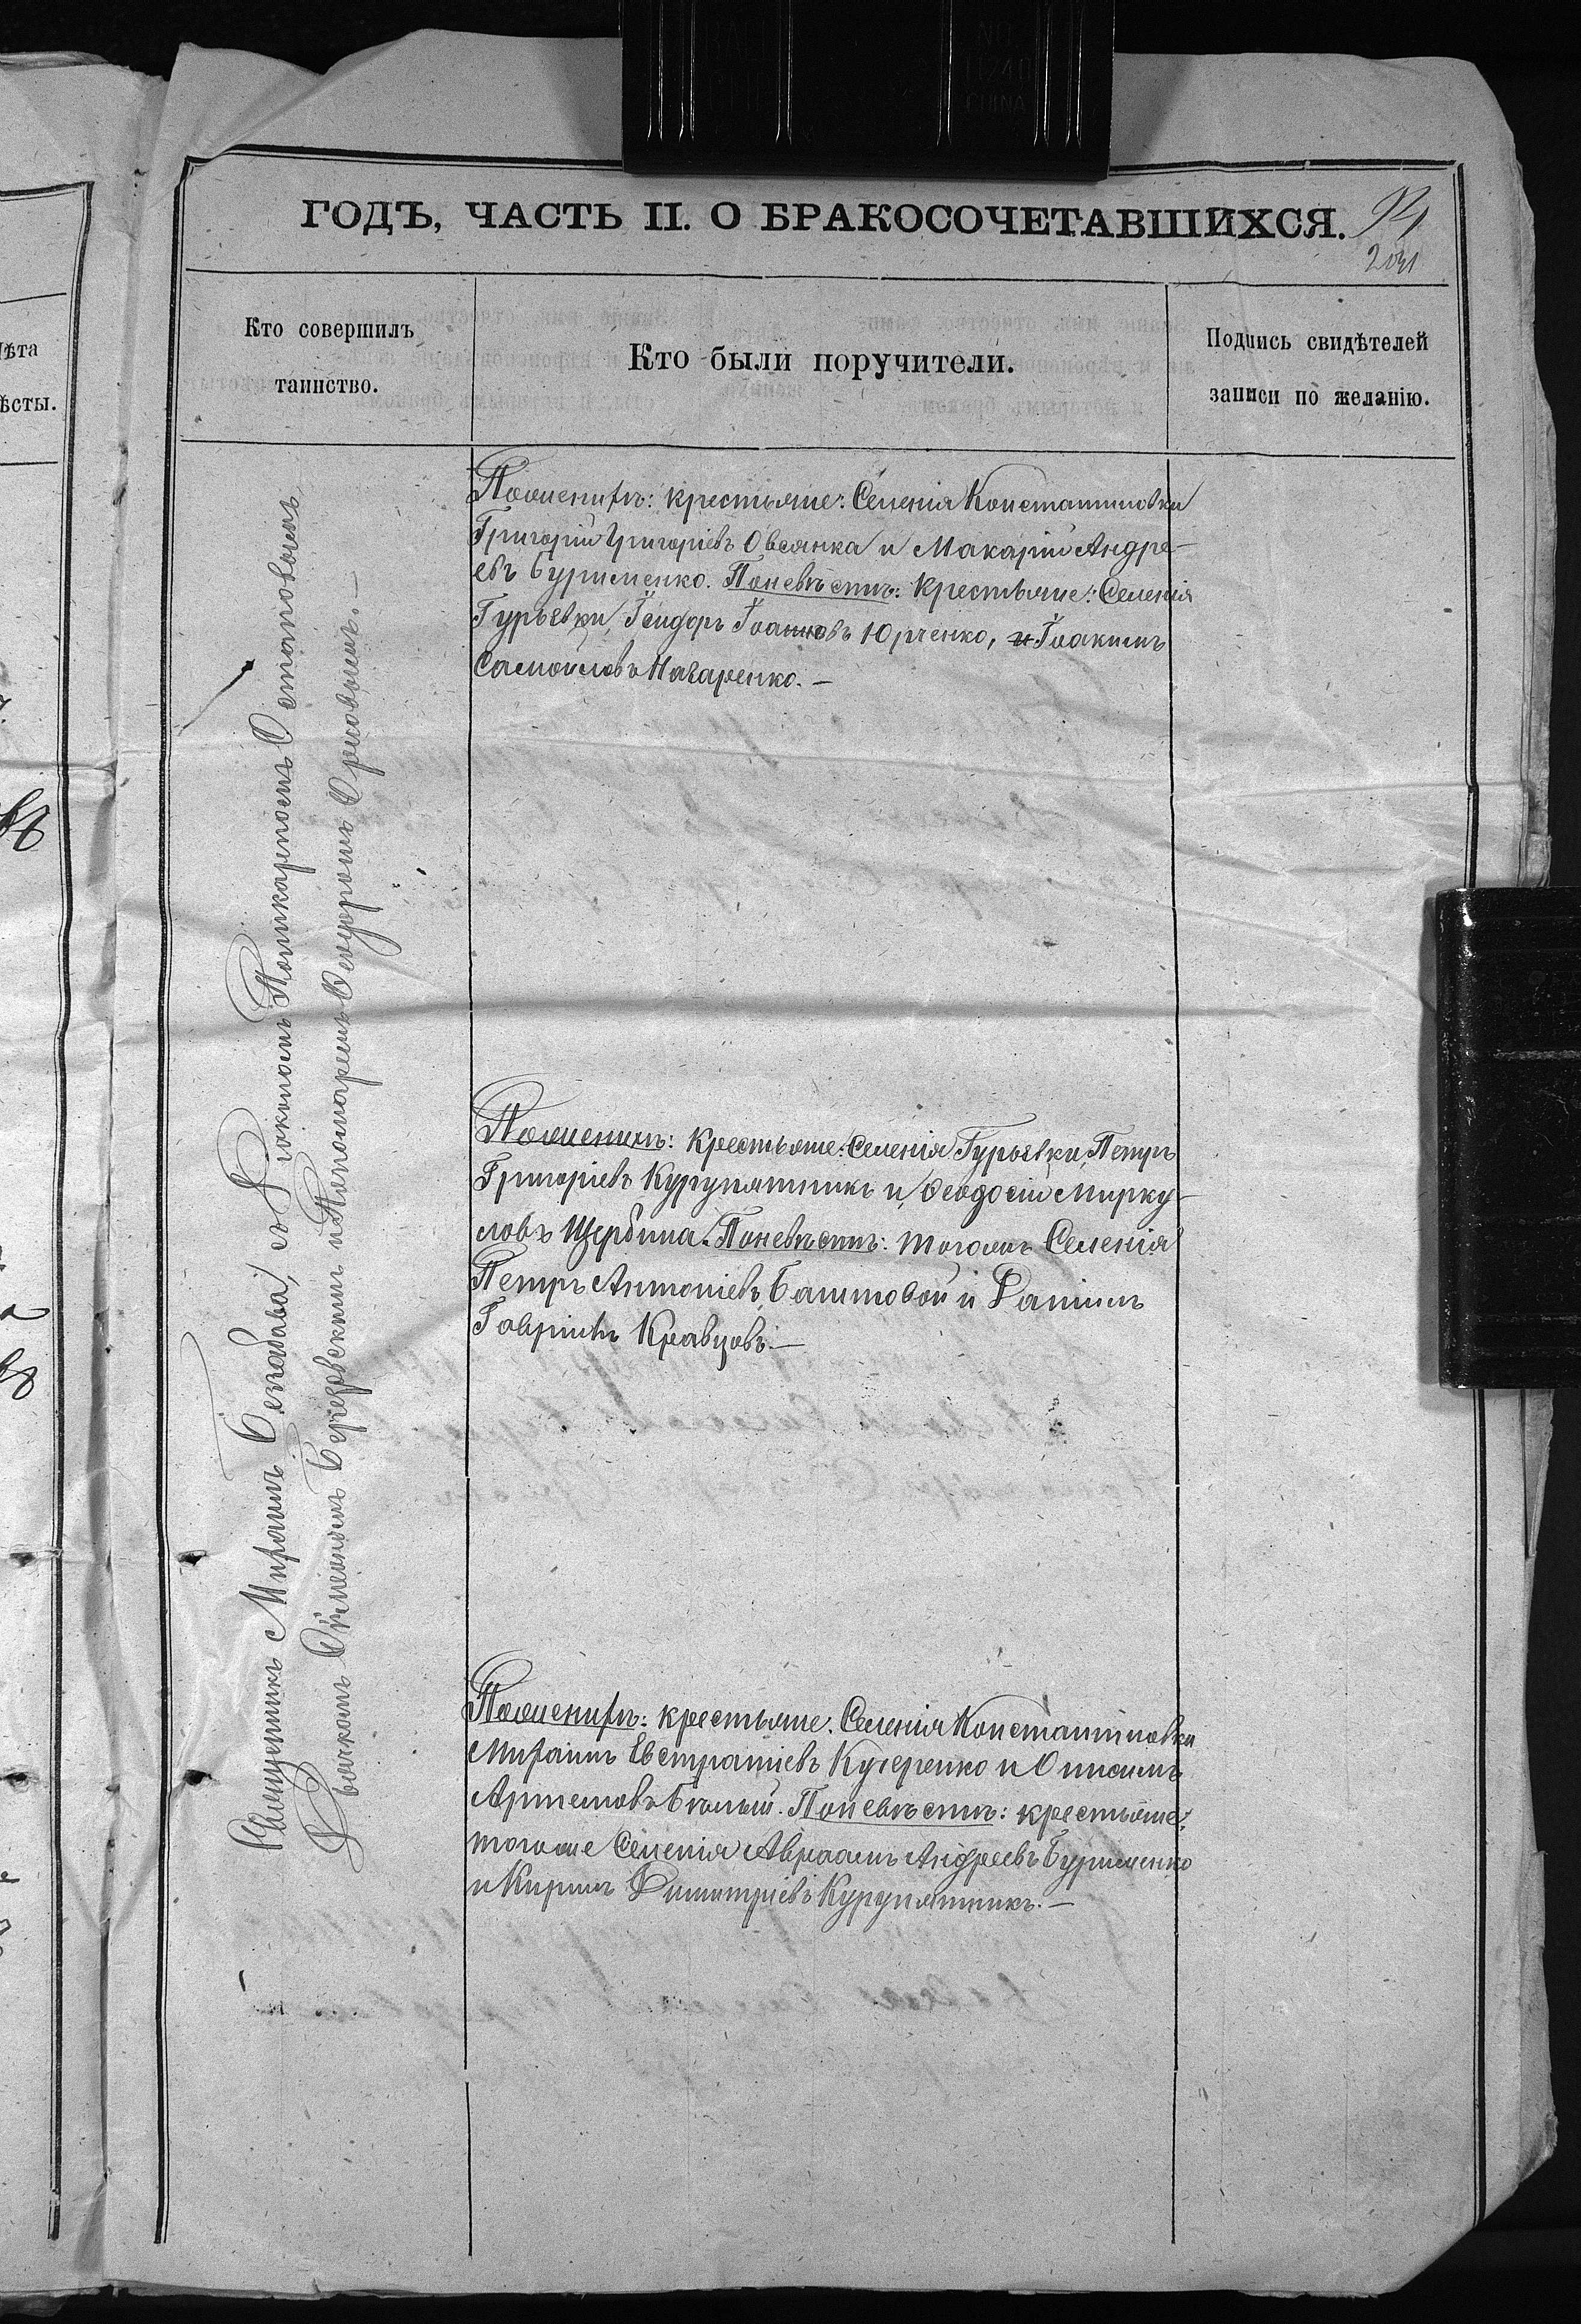 ГОДЪ, ЧАСТЬ II. О БРАКОСОЧЕТАВШИХСЯ.
Кто совершилъ
таинство.
Кто были поручители.
Подпись свидѣтелей
записи по желанію.
лѣта
вѣсты.
Священникъ Михаилъ Белабаба, съ Діакономъ Поликарпомъ
Дьячкомъ Сѵмеономъ Бережовскимъ и Пономаремъ Ѳеодоромъ
По женихѣ: крестьяне: Селенія Константиновки
Григорій Григоріевъ Овсянка и Макарій Андре-
евъ Бурименко. По невѣстѣ: крестьяне: Селенія
Гурьевки, Іоанновъ Юрченко, и Іоакимъ
Самойловъ Назаренко. —
По женихѣ: крестьяне: Селенія Гурьевки, Петръ
Григоріевъ Курупятникъ и Ѳеодосій Мирку-
ловъ Щербина. По невѣстѣ: тогожъ Селенія
Петръ Антоніевъ Баштовой и Даніилъ
Гавріилъ Кравцовъ. —
По женихѣ: крестьяне: Селенія Константиновки
Михаилъ Евстратіевъ Кучеренко и Онисимъ
Артемовъ Бѣлый. По невѣстѣ: крестьяне:
тогоже Селенія Авраамъ Андреевъ Бурименко
и Кирилъ Димитріевъ Курупятникъ. —